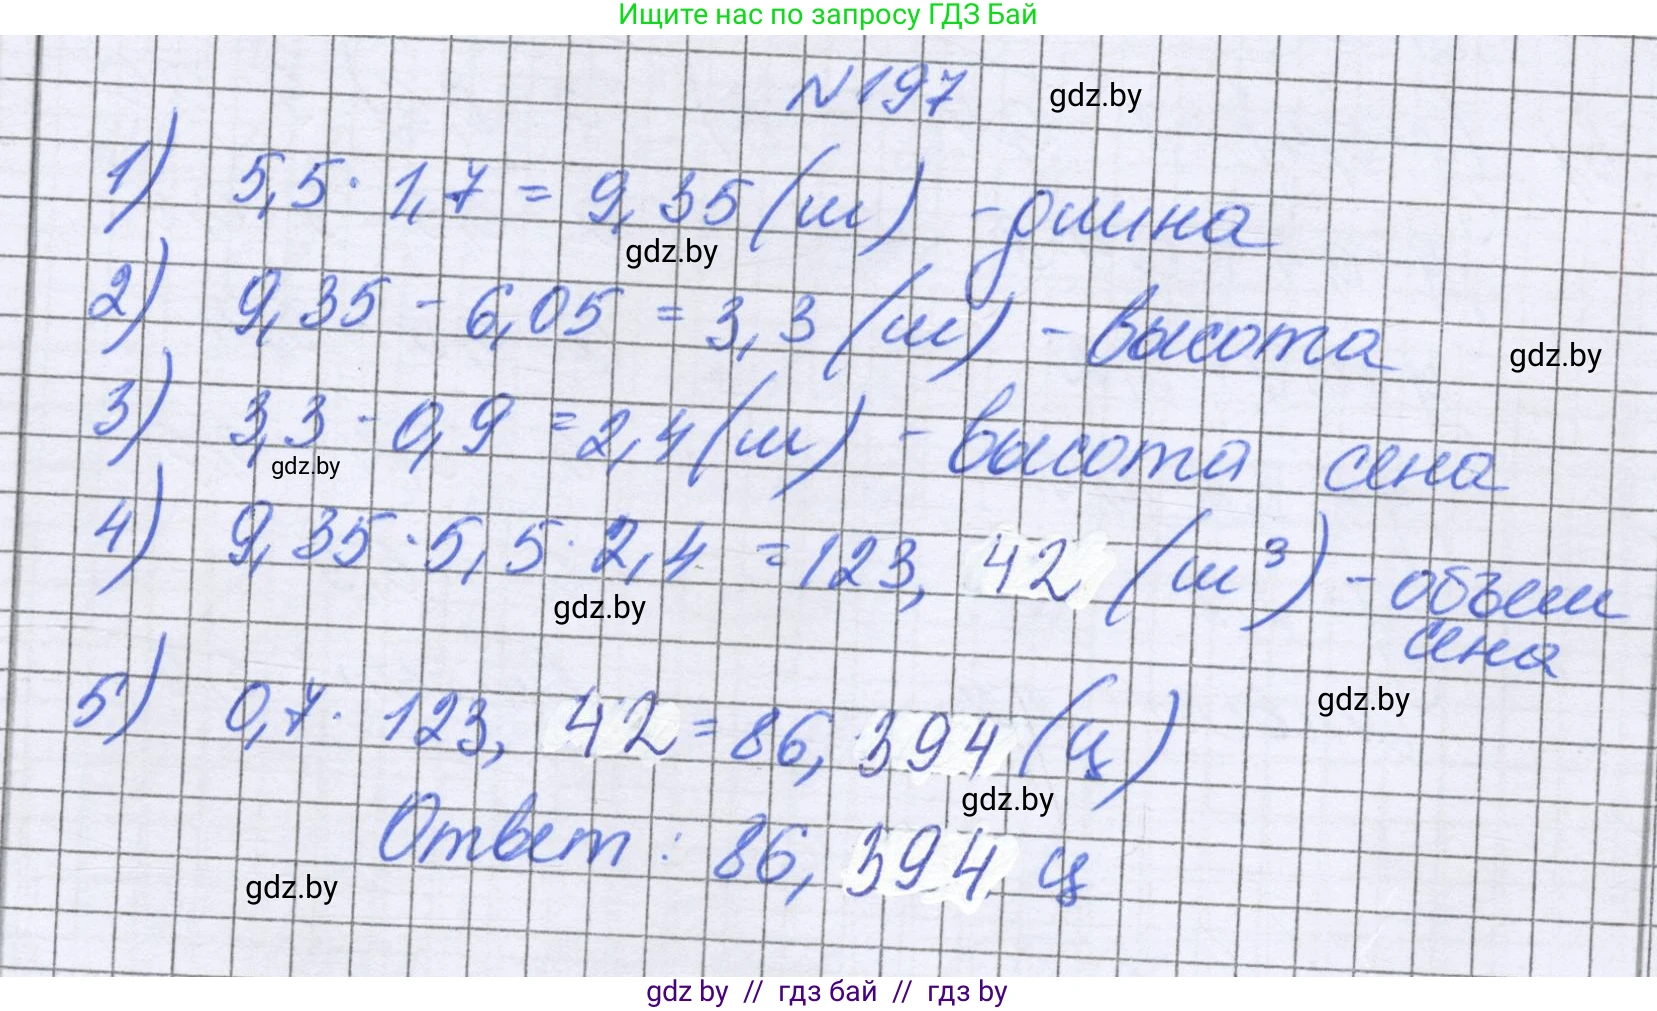 Ищите нас по запросу ГДЗ Бай
N197 gdz.by
1) 5,5 · 1,7 = 9,35 (м) - длина
gdz.by
2) 9,35 - 6,05 = 3,3 (м) - высота
gdz.by
3) 3,3 - 0,9 = 2,4 (м) - высота сена
gdz.by
4) 9,35 · 5,5 · 2,4 = 123, 42 (м³) - объем
сена
gdz.by
gdz.by
5) 0,7 · 123, 42 = 86, 394 (ц)
gdz.by
Ответ: 86, 394 ц
gdz.by
gdz by // гдз бай // гдз by